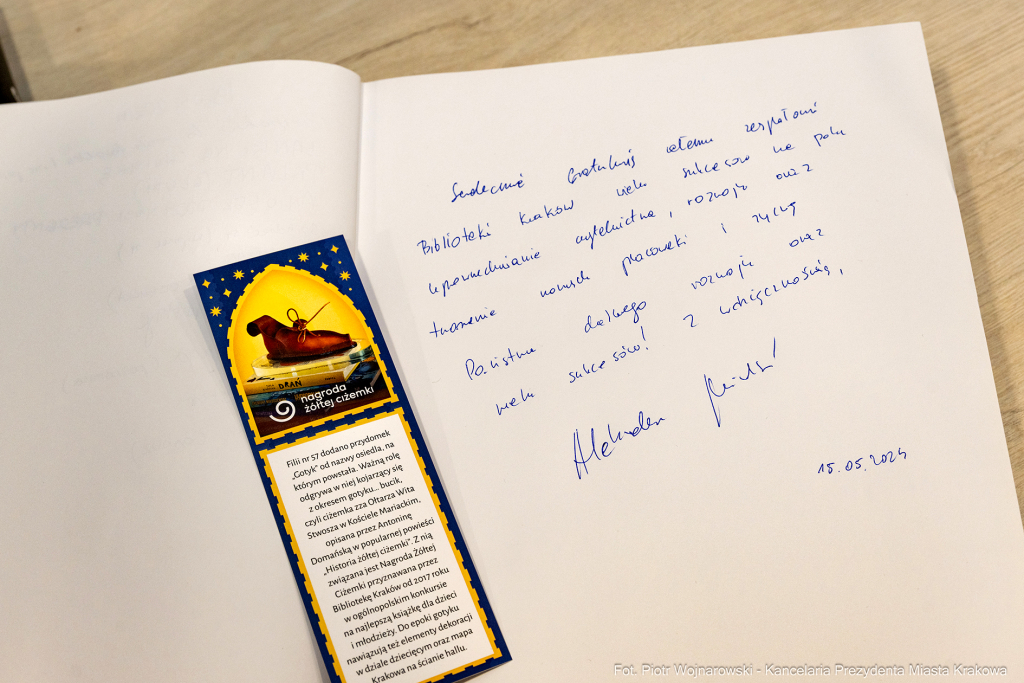 Serdecznie Gratuluję całemu zespołowi
Biblioteki Kraków wielu sukcesów na polu
upowszechniania czytelnictwa, rozwoju oraz
tworzenia nowych placówek i życzę
Państwu dalszego rozwoju oraz
wielu sukcesów! Z wdzięcznością,
Aleksander
15.05.2024
DRAŃ
nagroda
żółtej ciżemki
Filii nr 57 dodano przydomek
„Gotyk" od nazwy osiedla, na
którym powstała. Ważną rolę
odgrywa w niej kojarzący się
z okresem gotyku... bucik,
czyli ciżemka zza Ołtarza Wita
Stwosza w Kościele Mariackim,
opisana przez Antoninę
Domańską w popularnej powieści
„Historia żółtej ciżemki". Z nią
związana jest Nagroda Żółtej
Ciżemki przyznawana przez
Bibliotekę Kraków od 2017 roku
w ogólnopolskim konkursie
na najlepszą książkę dla dzieci
i młodzieży. Do epoki gotyku
nawiązują też elementy dekoracji
w dziale dziecięcym oraz mapa
Krakowa na ścianie hallu.
Fot. Piotr Wojnarowski - Kancelaria Prezydenta Miasta Krakowa